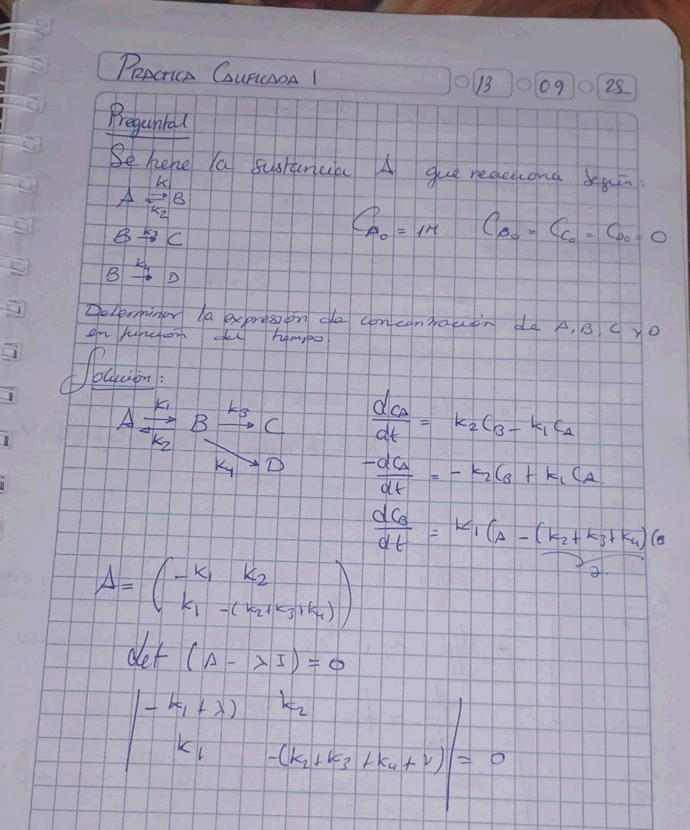 PRACTICA CALIFICADA 1 13 09 25
Pregunta1
Se tiene la sustancia A que reacciona según:
A ⇌ B K1 K2
B →K3 C
B →K4 D
CA0 = 1M CB0 = CC0 = CD0 = 0
Determinar la expresión de concentración de A, B, C y D
en función del tiempo.
Solución:
A ⇌ B K1 K2 →K3 C
K4 → D
dCA/dt = k2CB - k1CA
-dCA/dt = -k2CB + k1CA
dCB/dt = K1CA - (k2+k3+k4)CB
A = ( -K1 K2
K1 -(K2+K3+K4) )
det (A - λI) = 0
| -K1+λ) K2
K1 -(K2+K3+K4+λ) | = 0